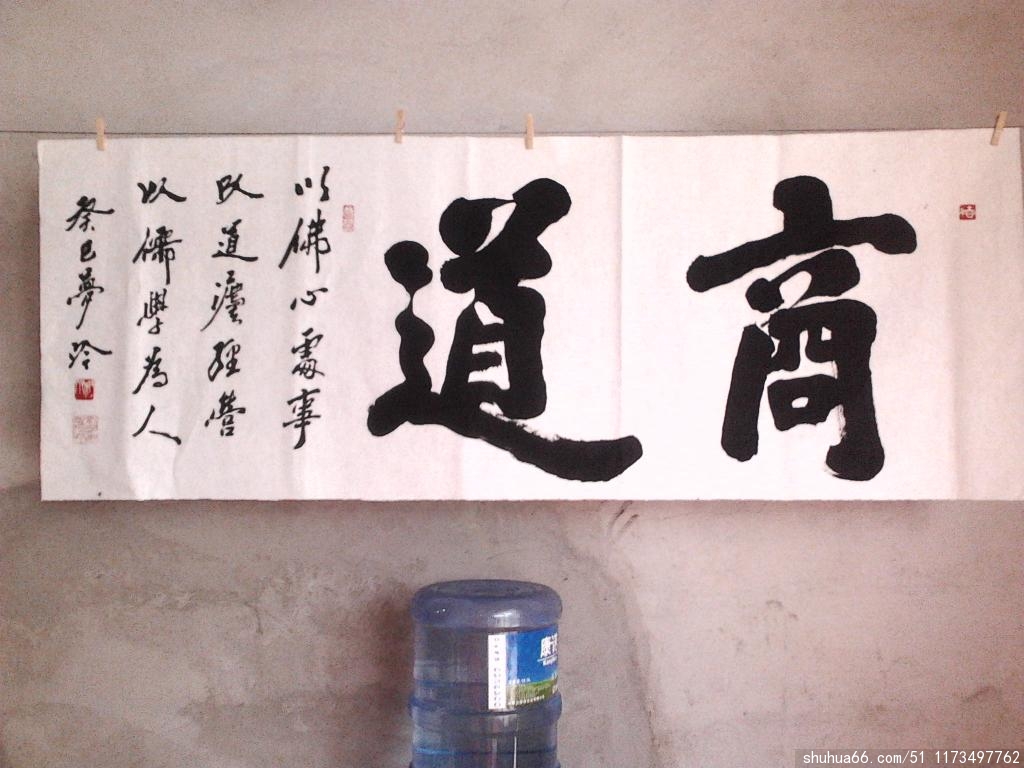 商道
以佛心處事
以道瀍經營
以儒學為人
癸巳夢玲
康
shuhua66.com/51 1173497762